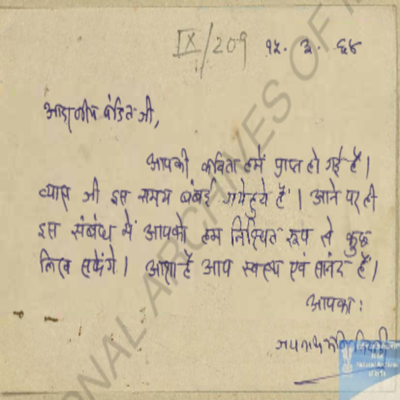 IX/209 १५. ३. ६४
आदरणीय पंडित जी,
आपकी कविता हमें प्राप्त हो गई है।
व्यास जी इस समय बंबई गये हुये हैं। आने पर ही
इस संबंध में आपको हम निश्चित रूप से कुछ
लिख सकेंगे। आशा है आप स्वस्थ एवं सानंद हैं।
आपका:
NAL ARCHIVES OF